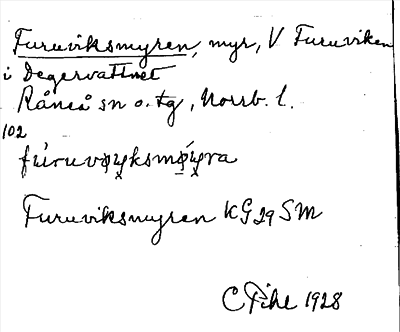 Furuviksmyren, myr, V Furuviken
i Degervattnet
Råneå sn o. tg, Norrb. l.
102
Furuviksmyren KG29SM
C Pihl 1928